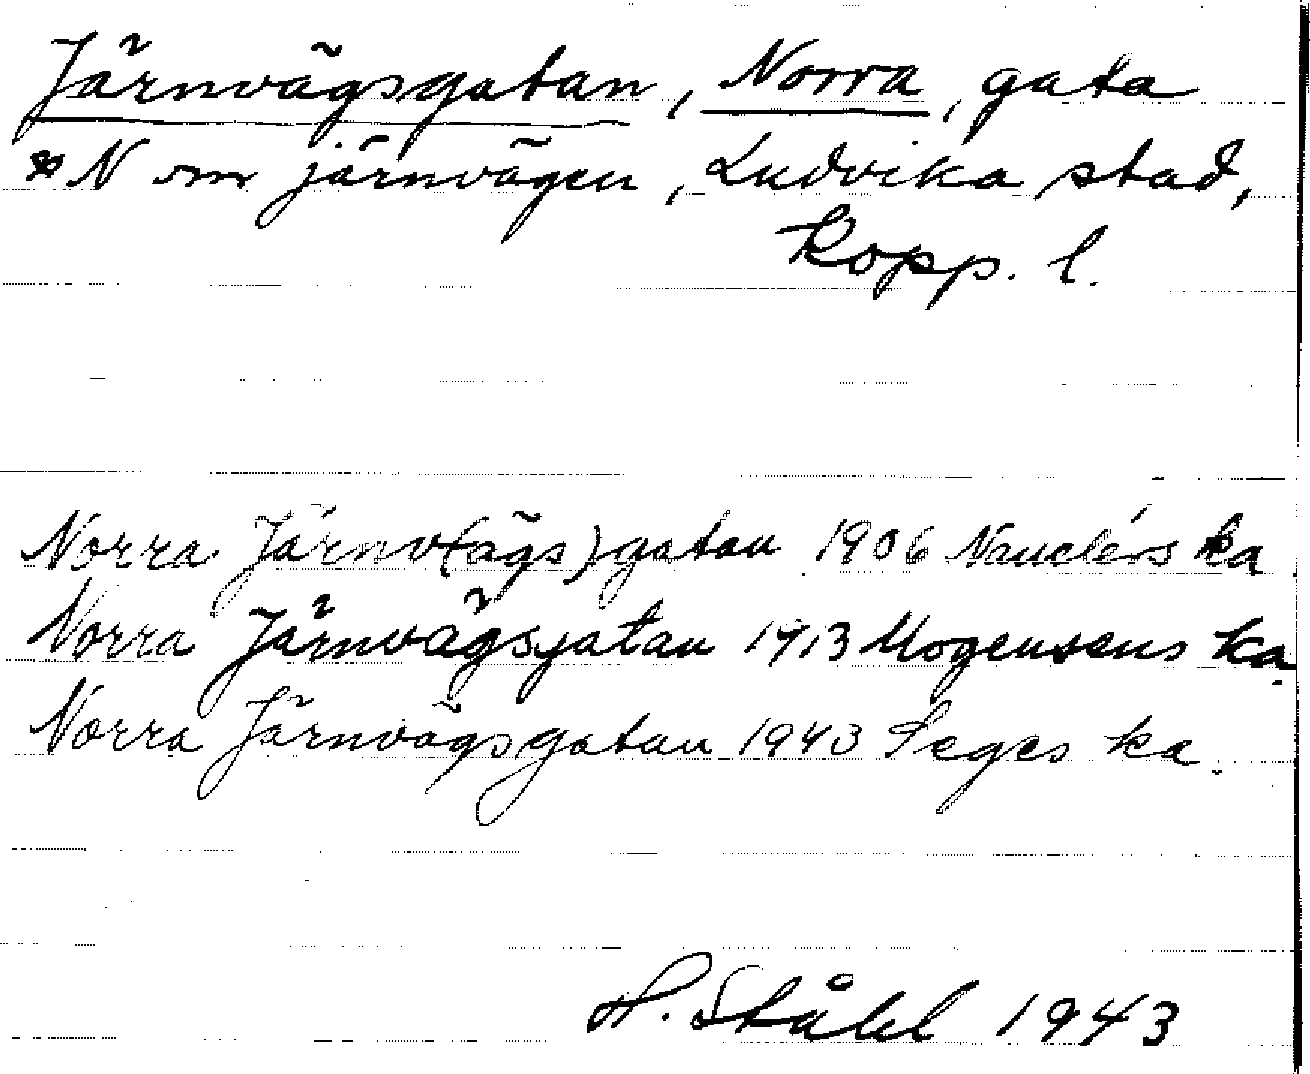 Järnvägsgatan, Norra, gata
*N om järnvägen, Ludvika stad,
Kopp. l.
Norra Järnv(ägs)gatan 1906 Nauclérs ka
Norra Järnvägsgatan 1913 Mogensens ka
Norra Järnvägsgatan 1943 Seges ka
H. Ståhl 1943